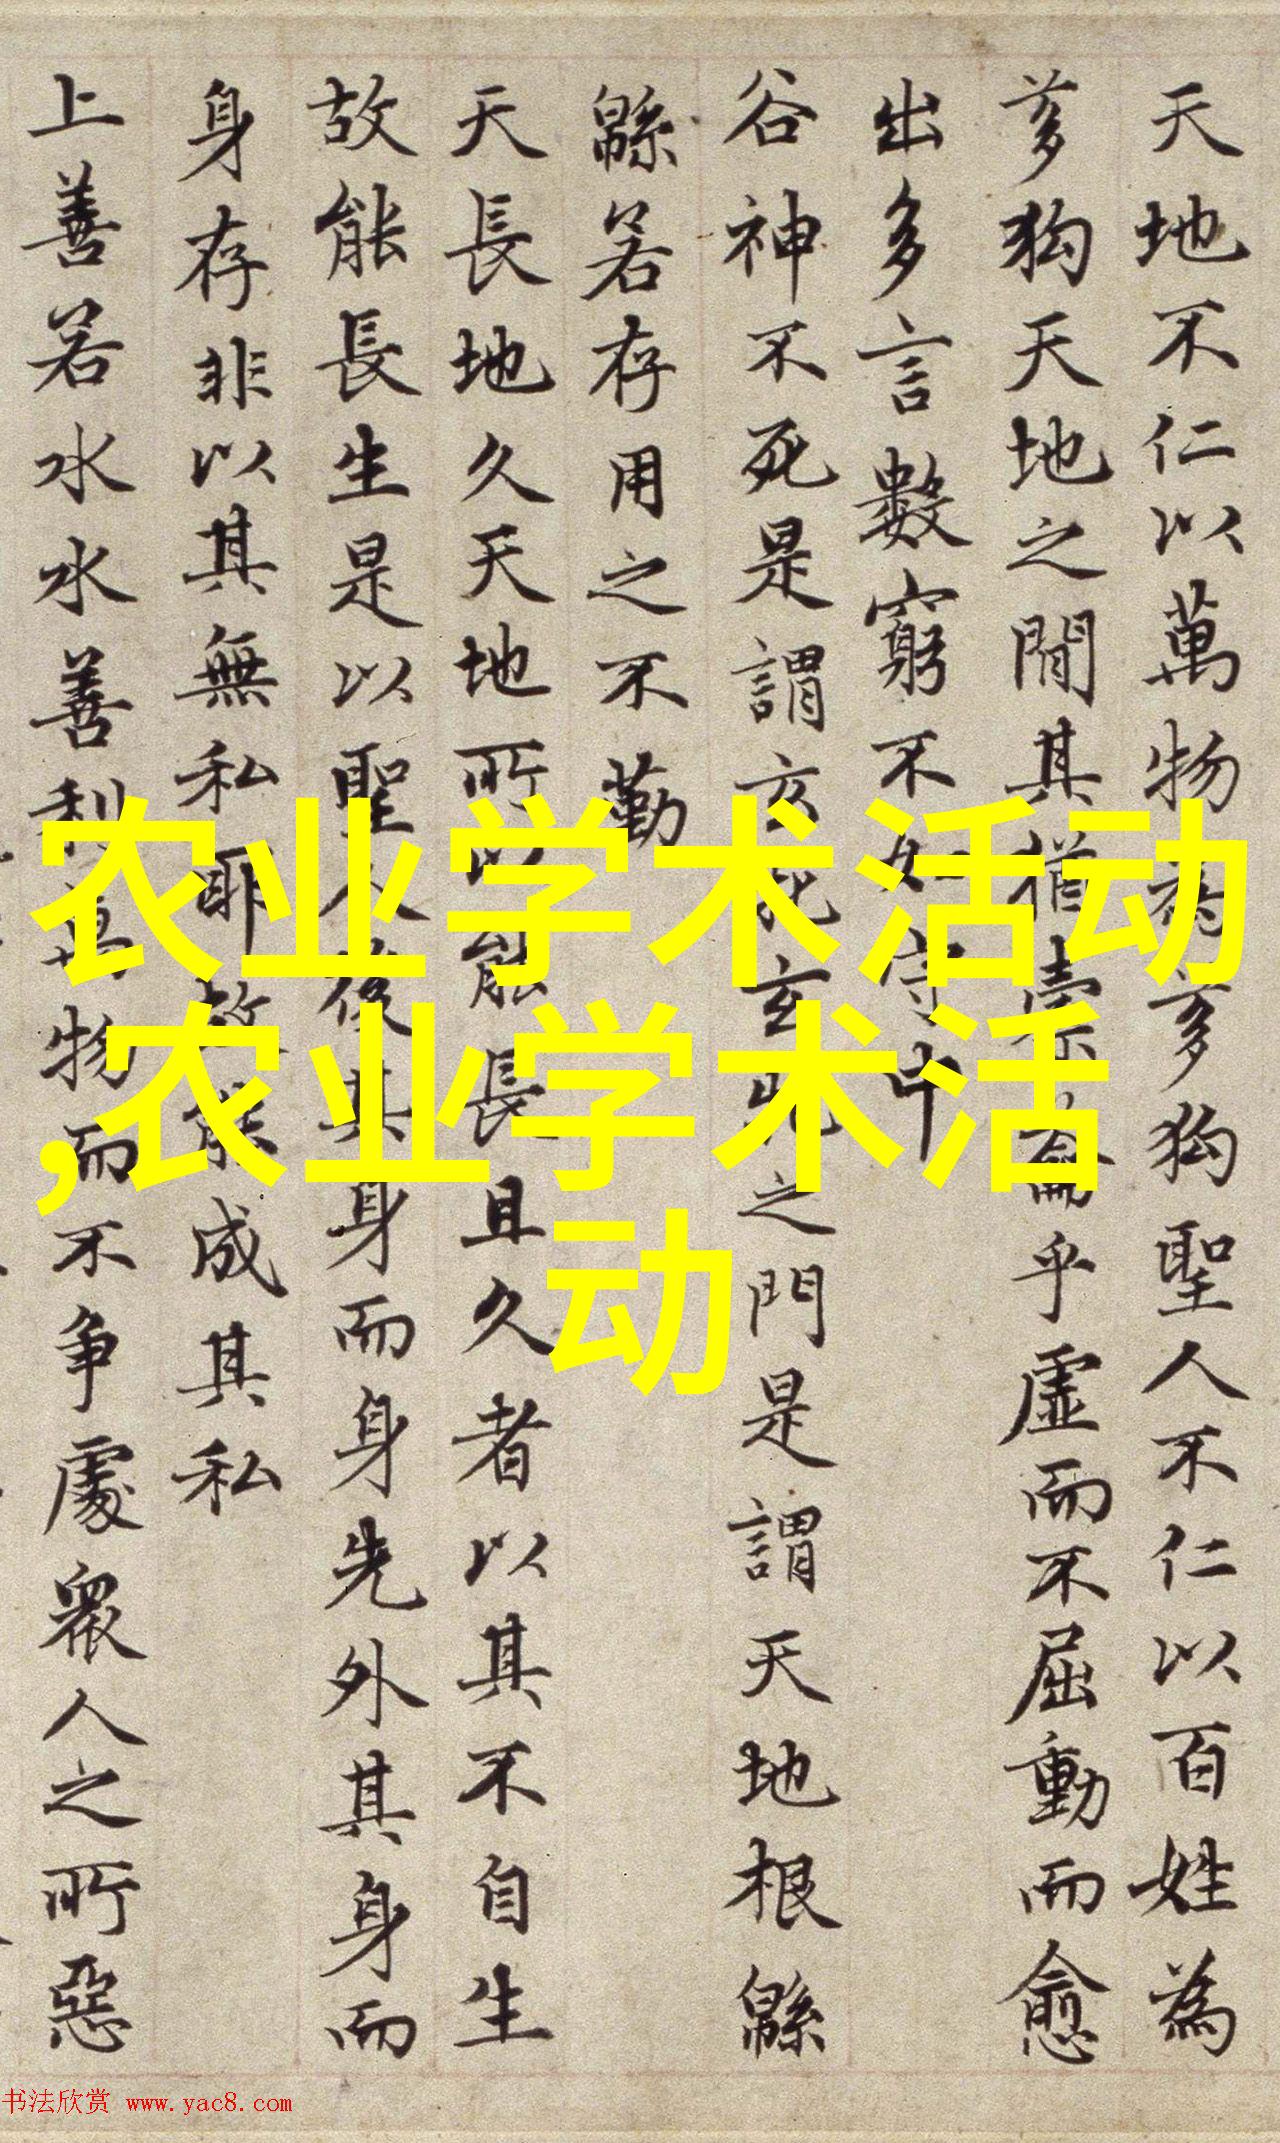 天地不仁以萬物為芻狗聖人不仁以百姓為
芻狗天地之間其猶橐籥乎虛而不屈動而愈
出多言數窮不如守中
谷神不死是謂玄牝玄牝之門是謂天地根緜
緜若存用之不勤
天長地久天地所以能長且久者以其不自生
故能長生是以聖人後其身而身先外其身而
身存非以其無私耶故能成其私
上善若水水善利萬物而不争處衆人之所惡
农业学术活动
,农业学术活
动
书法欣赏 www.yac8.com